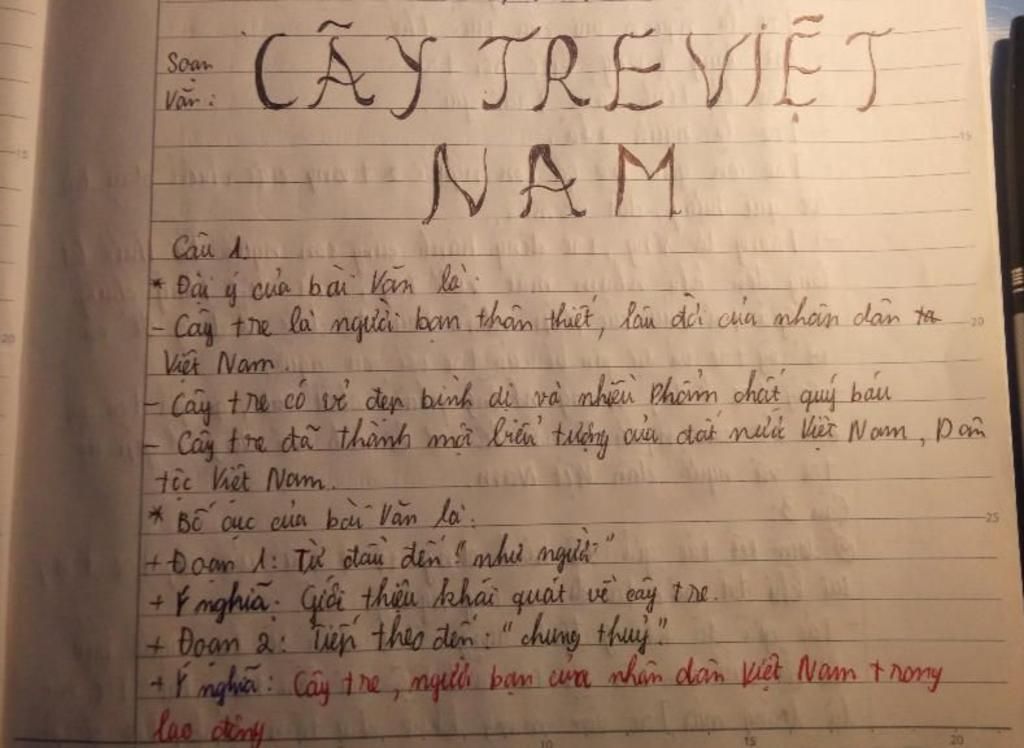 Soạn
Văn: CÂY TRE VIỆT
NAM
Câu 1.
* Đại ý của bài Văn là:
- Cây tre là người bạn thân thiết, lâu đời của nhân dân ta
Việt Nam.
- Cây tre có vẻ đẹp bình dị và nhiều Phẩm chất quý báu
- Cây tre đã thành một biểu tượng của đất nước Việt Nam, Dân
tộc Việt Nam.
* Bố cục của bài Văn là:
+ Đoạn 1: Từ đầu đến "như người"
+ Ý nghĩa: Giới thiệu khái quát về cây tre.
+ Đoạn 2: Tiếp theo đến: "chung thuỷ"
+ Ý nghĩa: Cây tre, người bạn của nhân dân Việt Nam trong
lao động
15
20
25
15
20
10
15
20